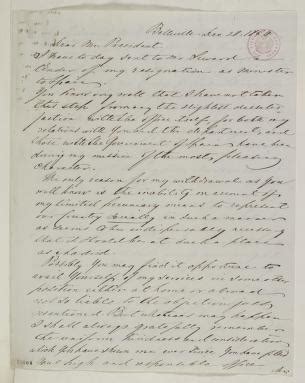 Belleville Dec 28. 1864
Dear Mr. President.
I have to day sent to Mr Seward a
tender of my resignation as Minister
to Spain
You know very well that I have not taken
this step from any the slightest dissatis-
faction with the office itself for both my
relations with You and the department, and
those with the Government of Spain have been
during my mission of the most pleasing
character.
The only reason for my withdrawal as You
well know is the inability on account of
my limited pecuniary means to represent
our Country socially in such a manner
as seems to be indispensably necessary
that it should be at such a place
as Madrid.
Possibly You may find it opportune to
avail Yourself of my services in some other
position either at home or abroad
not liable to the objection just
mentioned. But whatever may happen
I shall always gratefully remember
the uniform kindness and consideration
which You have shown me ever since You have filled
Your high and responsible office